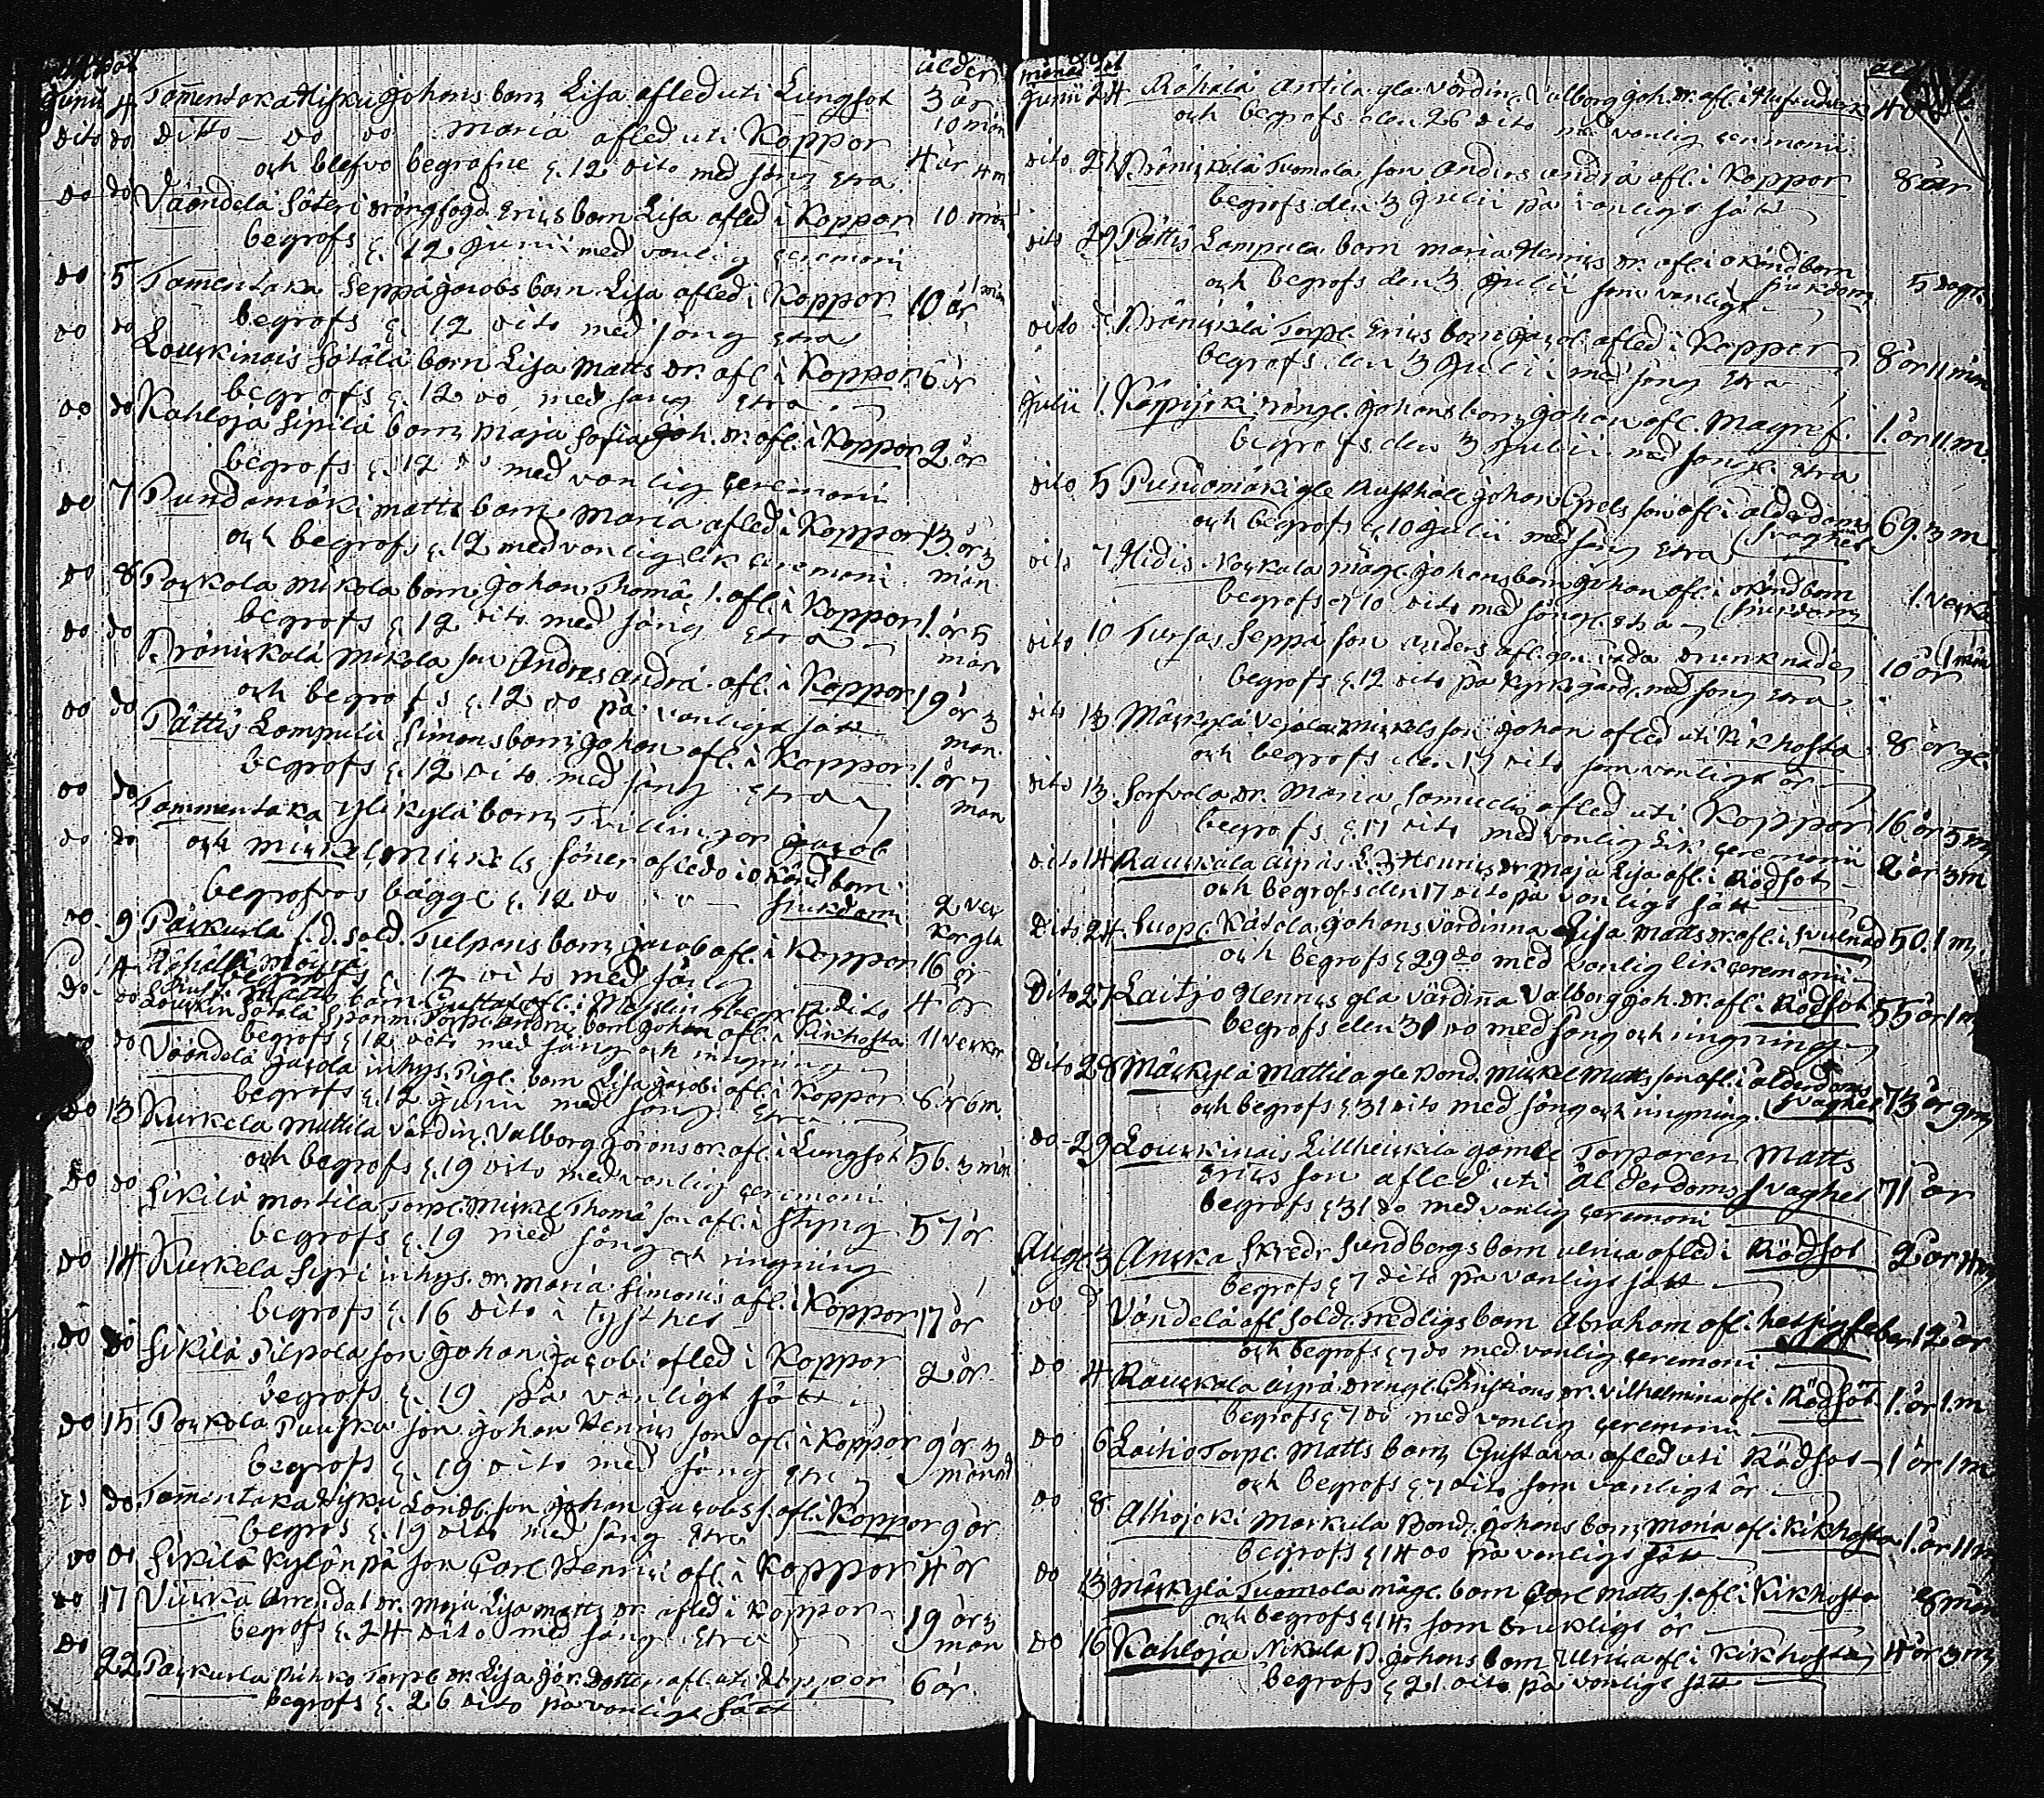 ålder
Junii 4 Tamentaka Hisku Johans barn Lisa afled uti Lungsot 3 år
dito do ditto - do do Maria afled uti Koppor 10 mån
och blefvo begrafne d. 12 dito med sång etra 4 år 4 m
do do Väändelä Säteri drängfogd Erics barn Lisa afled i Koppor 10 mån
begrofs d. 12 Junii med vanlig ceremoni
do 5 Tamentaka Seppä Jacobs barn Lisa afled i Koppor 10 år 1 mån
begrofs d. 12 dito med sång etra
do do Louckinais Sotala barn Lisa Matts dr. afl. i Koppor 6 år
begrofs d. 12 do med sång etra
do do Kahloja Sipilä barn Maja Sofia Joh. dr. afl. i Koppor 2 år
begrofs d. 12 do med vanlig ceremoni
do 7 Pundamäki Matts barn Maria afled i Koppor 13 år 3
och begrofs d. 12 med vanlig lik ceremoni mån
do 8 Pockola Mikola barn Johan Thoma s. afl. i Koppor 1 år 5
begrofs d. 12 dito med sång etra mån
do do Pränickälä Mikola son Andres Andra. afl. i Koppor 19 år 3
och begrofs d. 12 do på vanligt sätt mån.
do do Pättis Lompula Simons barn Johan afl. i Koppor 1 år 7
begrofs d. 12 dito med sång etra mån
do do Tammentaka Ylikylä barn Tvillingar Jacob
do do och Mickel, Mickels söner afledo i okänd barn
begrofvos bägge d. 12 do - sjukdom 2 vec
do 9 Päckurla f.d. Sold. Tulpans barn Jacob afl. i Koppor 16 år
begrofs d. 12 dito med sång
do do barn Gustaf afl. i Maslin begr 12 dito 4 år
Louckin Sotala Spanm. Torp. Andra barn Johan afl. i Kikhosta 11 veckor
begrofs d. 12 dito med sång och ringning
do do Väändelä Jacola inhys. Pigl. barn Lisa Jacobi afl. i Koppor 6 år 6 m.
begrofs d. 12 Junii med sång etra
do 13 Kurkela Mattila värdin. Valborg Görans dr. afl. i Lungsot 56. 3 mån
och begrofs d. 19 dito med vanlig ceremoni
do do Sikilä Martila Torp. Mickel Thoma son afl. i Styng 57 år
begrofs d. 19 med sång och ringning
do 14 Kurkela Syri inhys. dr. Maria Simonis afl. i Koppor 17 år
begrofs d. 16 dito i tysthet
do do Sikilä Pilpola son Johan Jacobi afled i Koppor 2 år
begrofs d. 19 på vanligt sätt
do 15 Pockola Puuska son Johan Henrics son afl. i Koppor 9 år 3
begrofs d. 19 dito med sång etra månad
do Tamentaka Hisku Landb. son Johan Jacobs s. afl. i Koppor 9 år
begros d. 19 dito med sång etra
do do Sikilä Kylänpä son Carl Henrici afl. i Koppor 4 år
do 17 Viicka Arrendat. dr. Maja Lisa Matts dr. afled i Koppor 19 år 3
begrofs d. 24 dito med sång etra mån
do 22 Päckurla Torp. dr. Lisa Jör. dotter afl. uti Koppor 6 år
begrofs d. 26 dito på vanligt sätt
månad
Junii 24 Rähälä Antila gla värdin. Valborg Joh. dr. afl. i
och begrofs den 26 dito med vanlig ceremoni
dito 27 Pränickälä Tuomola son Anders Andra afl. i Koppor 8 år
begrofs den 3 Julii på vanligt sätt
dito 29 Pättis Lompula barn Maria Henrics dr. afl. i okänd barn
och begrofs den 3 Julii som vanligt sjukdom 5 dagar
dito Pränickälä Torp. Erics barn Jacob afled i Koppor 8 år 11 mån
begrofs den 3 Julii med sång etra
Julii 1. Karpijoki drängl. Johans barn Johan afl. Magref. 1 år 11 m.
begrofs den 3 Julii med sång etra
dito 5 Pundamäki gle Rusthåll. Johan son afl. i ålderdoms 69. 3 m.
och begrofs d. 10 Julii med sång etra svaghet
dito 7 Hidis Nackala mågl. Johans barn Johan afl. i okänd barn 1 vecka
begrofs d. 10 dito med sång etra sjukdom
dito 10 Tursas Seppä son Anders afl. gen. våda drunknade 10 år 1 mån
begrofs d. 12 dito på kyrkogård med sång etra
dito 13 Mäckylä Vejola Mickels son Johan afled uti Kikhosta 8 år gl.
och begrofs den 17 dito som vanligt är
dito 13 Sorfvola dr. Maria Samuels afled uti Koppor 16 år 5 m
begrofs d. 17 dito med vanlig lik ceremoni
dito 14 Rauckala Äijräs Henrics dr Maja Lisa afl. i Rödsot 2 år 3 m
och begrofs den 17 dito på vanligt sätt
dito 24 Suopl. Kätola Johans värdinna Lisa Matts dr. afl. i Svulnad 50. 1 m
och begrofs d. 29 do med vanlig lik ceremoni
dito 27 Laitjo Henrics gla värdinna Valborg Joh. dr. afl. i Rödsot 55 år 1 m
begrofs den 31 do med sång och ringning
dito 28 Mäckylä Mattila gle Bond. Mickel Matts son afl. i ålderdoms 73 år 9 m
och begrofs d. 31 dito med sång och ringning. svaghet
do 29 Louckinais Lillheickilä gamle Torparen Matts
Erics son afled uti Ålderdoms svaghet 71 år
begrofs d. 31 do med vanlig ceremoni
Aug. 3 Ancka Skreddr Sundbergs barn Ulrica afled i Rödsot 2 år 4 m
begrofs d. 7 dito på vanligt sätt
do Vändelä afl. Sold. Fredligs barn Abraham afl. i hetsig feber 12 år
och begrofs d. 7 do med vanlig ceremoni
do 4 Rauckala Äijrä drengl. Christians dr. Vilhelmina afl. i Rödsot 1 år 1 m
begrofs d. 7 do med vanlig ceremoni
do 6 Laihio Torp. Matts barn Gustava afled uti Rödsot 1 år 1 m
och begrofs d. 7 dito som vanligt är
do 8 Alhojoki Markula Bond. Johans barn Maria afl. i Kikhosta 1 år 11 m
begrofs d. 14 do på vanligt sätt
do 13 Mäckylä Tuomola mågl. barn Carl Matts s. afl. i Kikhosta 8 mån
och begrofs d. 14 som brukligt är
do 16 Kahloja Nikula B. Johans barn Ulrica afl. i Kikhosta 4 år 3 m
begrofs d. 21 dito på vanligt sätt